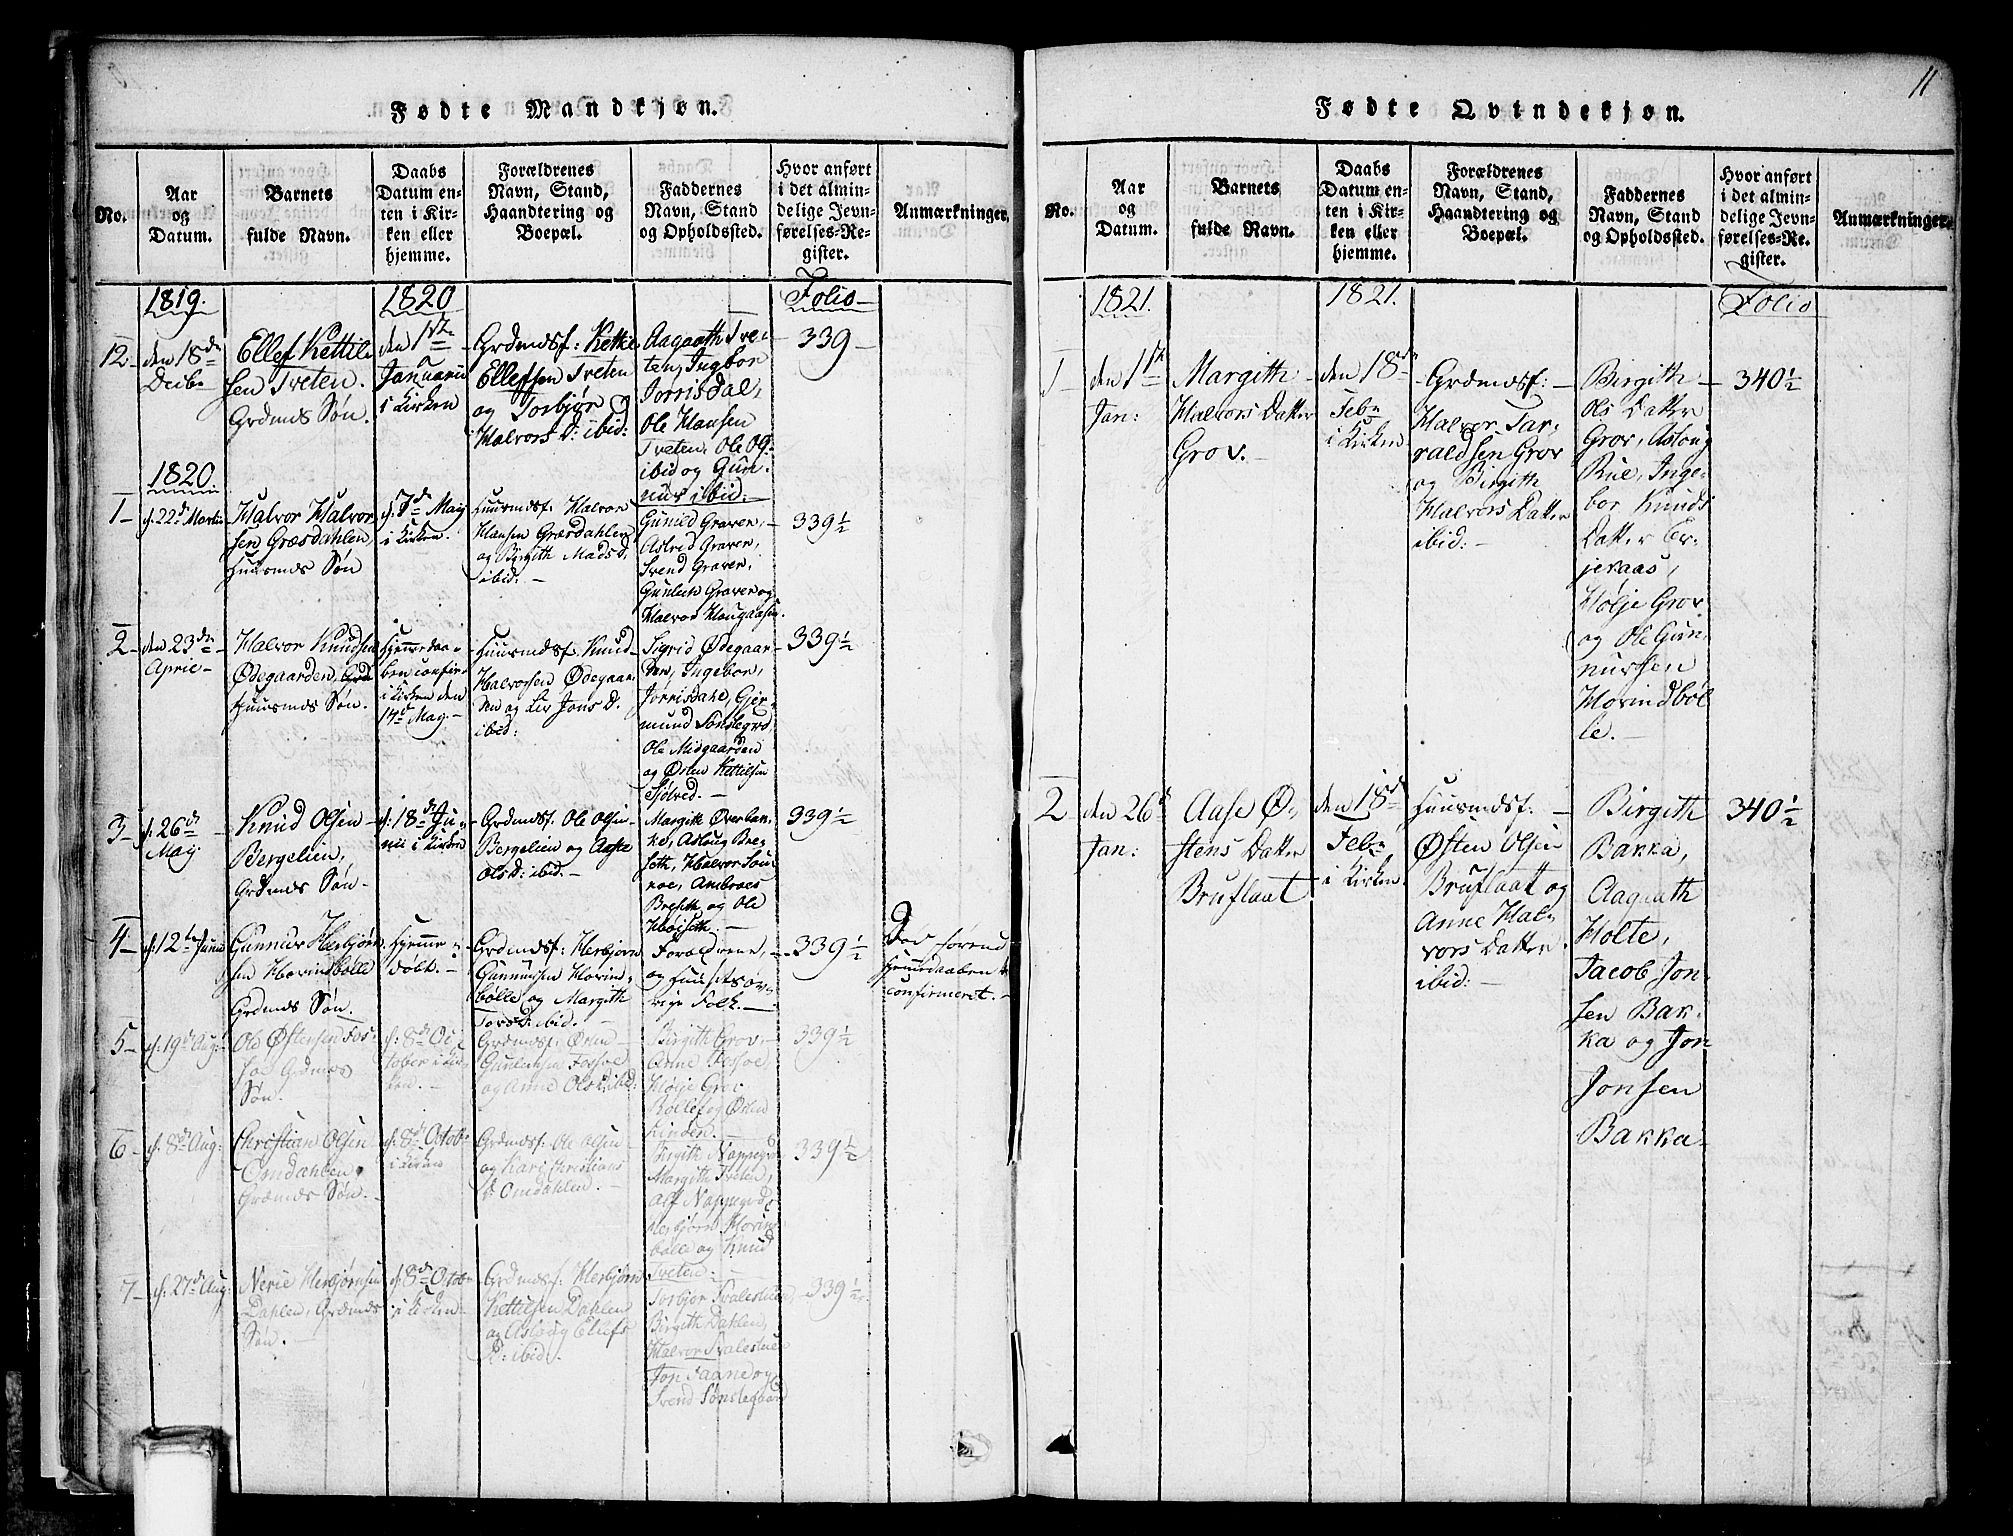 Fødte Mandkjøn.
No.
Aar
og
Datum.
Barnets
fulde Navn.
Daabs
Datum en-
ten i Kir-
ken eller
hjemme.
Forældrenes
Navn, Stand,
Haandtering og
Boepæl.
Faddernes
Navn, Stand
og Opholdssted.
Hvor anført
i det almin-
delige Jevn-
førelses-Re-
gister.
Anmærkninger.
1819.
1820
Folio
12
den 18de
Decbr
Ellef Kettil
sen Tveten.
Grdmds Søn.
den 1ste
Januarii
i Kirken
Grdmdsf: Kettel
Ellefsen Tveten
og Torbjør
Halvors D: ibid:
Aagaath Tve-
ten, Ingbor
Jorrisdal,
Ole Hansen
Tveten, Ole Ols
ibid og Gun-
nur ibid:
339
1820.
1
d. 22de Martii
Halvor Halvor
sen Græsdahlen,
Huusmds Søn
d. 7de May
i Kirken.
Huusmdsf: Halvor
Hansen Græsdahlen
og Birgith Mads D.
ibid:
Gunild Graver,
Astrid Graver,
Svend Graver,
Gunleik Graver og
Halvor Haugaasen
339 1/2
2
den 23de
April
Halvor Knudsen
Ødegaarden,
Huusmds Søn.
Hjemmedaa-
ben confir
i Kirken den
14de May
Huusmdsf: Knud
Halvorsen Ødegaar
den og Liv Jons D.
ibid:
Sigrid Ødegaar-
den, Ingebor
Jorrisdahl, Gjer-
mund Sønstegrd,
Ole Midgaarden
og Østen Kettilsen
Sjølved.
339 1/2
3
d. 26de
May
Knud Olsen
Bergelien,
Grdmds Søn
d. 18de Ju-
nii i Kirken
Grdmdsf: Ole Olsen
Bergelien og Aase
Ols D: ibid.
Margith Øverlan-
ke, Aslaug Bre-
seth, Halvor
Ambroes
Breseth og Ole
Høiseth.
339 1/2
4
d. 12te Junii
Gunnur Herbjørn
sen Hovindbølle
Grdmds Søn.
Hjemme-
døbt.
Grdmdsf: Herbjørn
Gunnursen Hovind
bølle og Margith
Tors D: ibid.
Forældrene,
og Husets øv-
rige Folk.
339 1/2
Død førend
Hjemmedaaben
confirmeret.
5
d. 19de Aug:
Ole Østensen Fos-
soe Grdmds
Søn.
d. 8de Oc
tober i Kir
ken.
Grdmdsf: Østen
Gunleiksen Fossoe
og Anne Ols D: ibid:
Birgith Grov,
Anne Fossoe
Hølje Grov
Rollef og Østen
Kinden.
339 1/2
6
d. 8de Aug:
Christian Olsen
Omdahlen
Grdmds Søn.
d. 8de Octobr
i Kirken
Grdmdsf: Ole Olsen
og Kari Christians
D: Omdahlen.
Birgith Noppegrd
Margith Tveten,
Alf Noppegrd
Herbjørn Hovind
bølle og Knud
Tveten:
339 1/2
7
d. 27de Aug:
Nerie Herbjørnsen
Dahlen, Grdmds
Søn.
d. 8de Octobr
i Kirken
Grdmdsf: Herbjørn
Kettilsen Dahlen
og Aslaug Ellefs
D: ibid:
Torbjør Svalestuen
Birgith Dahlen,
Halvor Svalestuen
Jon Faane og
Svend Sønstegaard
339 1/2
11
Fødte Qvindekjøn.
No.
Aar
og
Datum.
Barnets
fulde Navn.
Daabs
Datum en-
ten i Kir-
ken eller
hjemme.
Forældrenes
Navn, Stand,
Haandtering og
Boepæl.
Faddernes
Navn, Stand
og Opholdssted.
Hvor anført
i det almin-
delige Jevn-
førelses-Re-
gister.
Anmærkninger.
1821.
1821.
Folio
1
den 1ste
Jan:
Margith
Halvors Datter
Grov.
den 18de
Febr
i Kirken
Grdmdsf:
Halvor Tar-
raldsen Grov
og Birgith
Halvors Datter
ibid:
Birgith
Ols Datter
Grov, Aslaug
Rue, Inge-
bor Knuds
Datter Er-
jeraas,
Hølje Grov
og Ole Gun-
nursen
Hovindbøl
le.
340 1/2
2
den 26de
Jan:
Aase Ø-
stens Datter
Bruflaat
den 18de
Febr
i Kirken
Huusmdsf:
Østen Olsen
Bruflaat og
Anne Hal-
vors Datter
ibid:
Birgith
Bakka,
Aagaath
Holte,
Jacob Jon-
sen Bak-
ka og Jon
Jonsen
Bakka
340 1/2